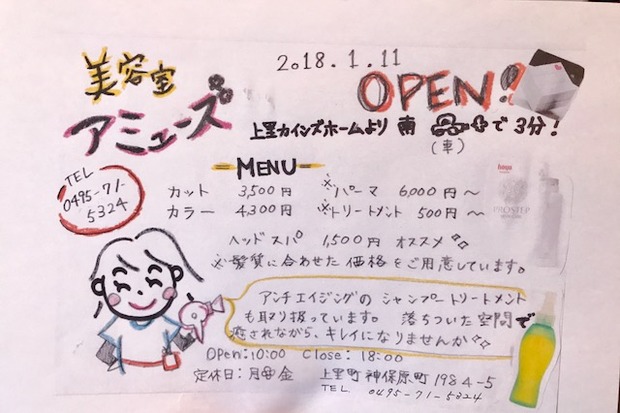 美容室
アミューズ
2018.1.11
OPEN!
上里カインズホームより 南 で3分!
(車)
TEL
0495-71-
5324
MENU
カット 3,500円 ※パーマ 6,000円~
カラー 4,300円 ※トリートメント 500円~
ヘッドスパ 1,500円 オススメ
※髪質に合わせた価格をご用意しています。
アンチエイジングの シャンプートリートメント
も取り扱っています。 落ちついた空間で
癒されながら、キレイになりませんか
OPen:10:00 Close:18:00
定休日:月 金 上里町神保原町1984-5
TEL 0495-71-5324
PROSTEP